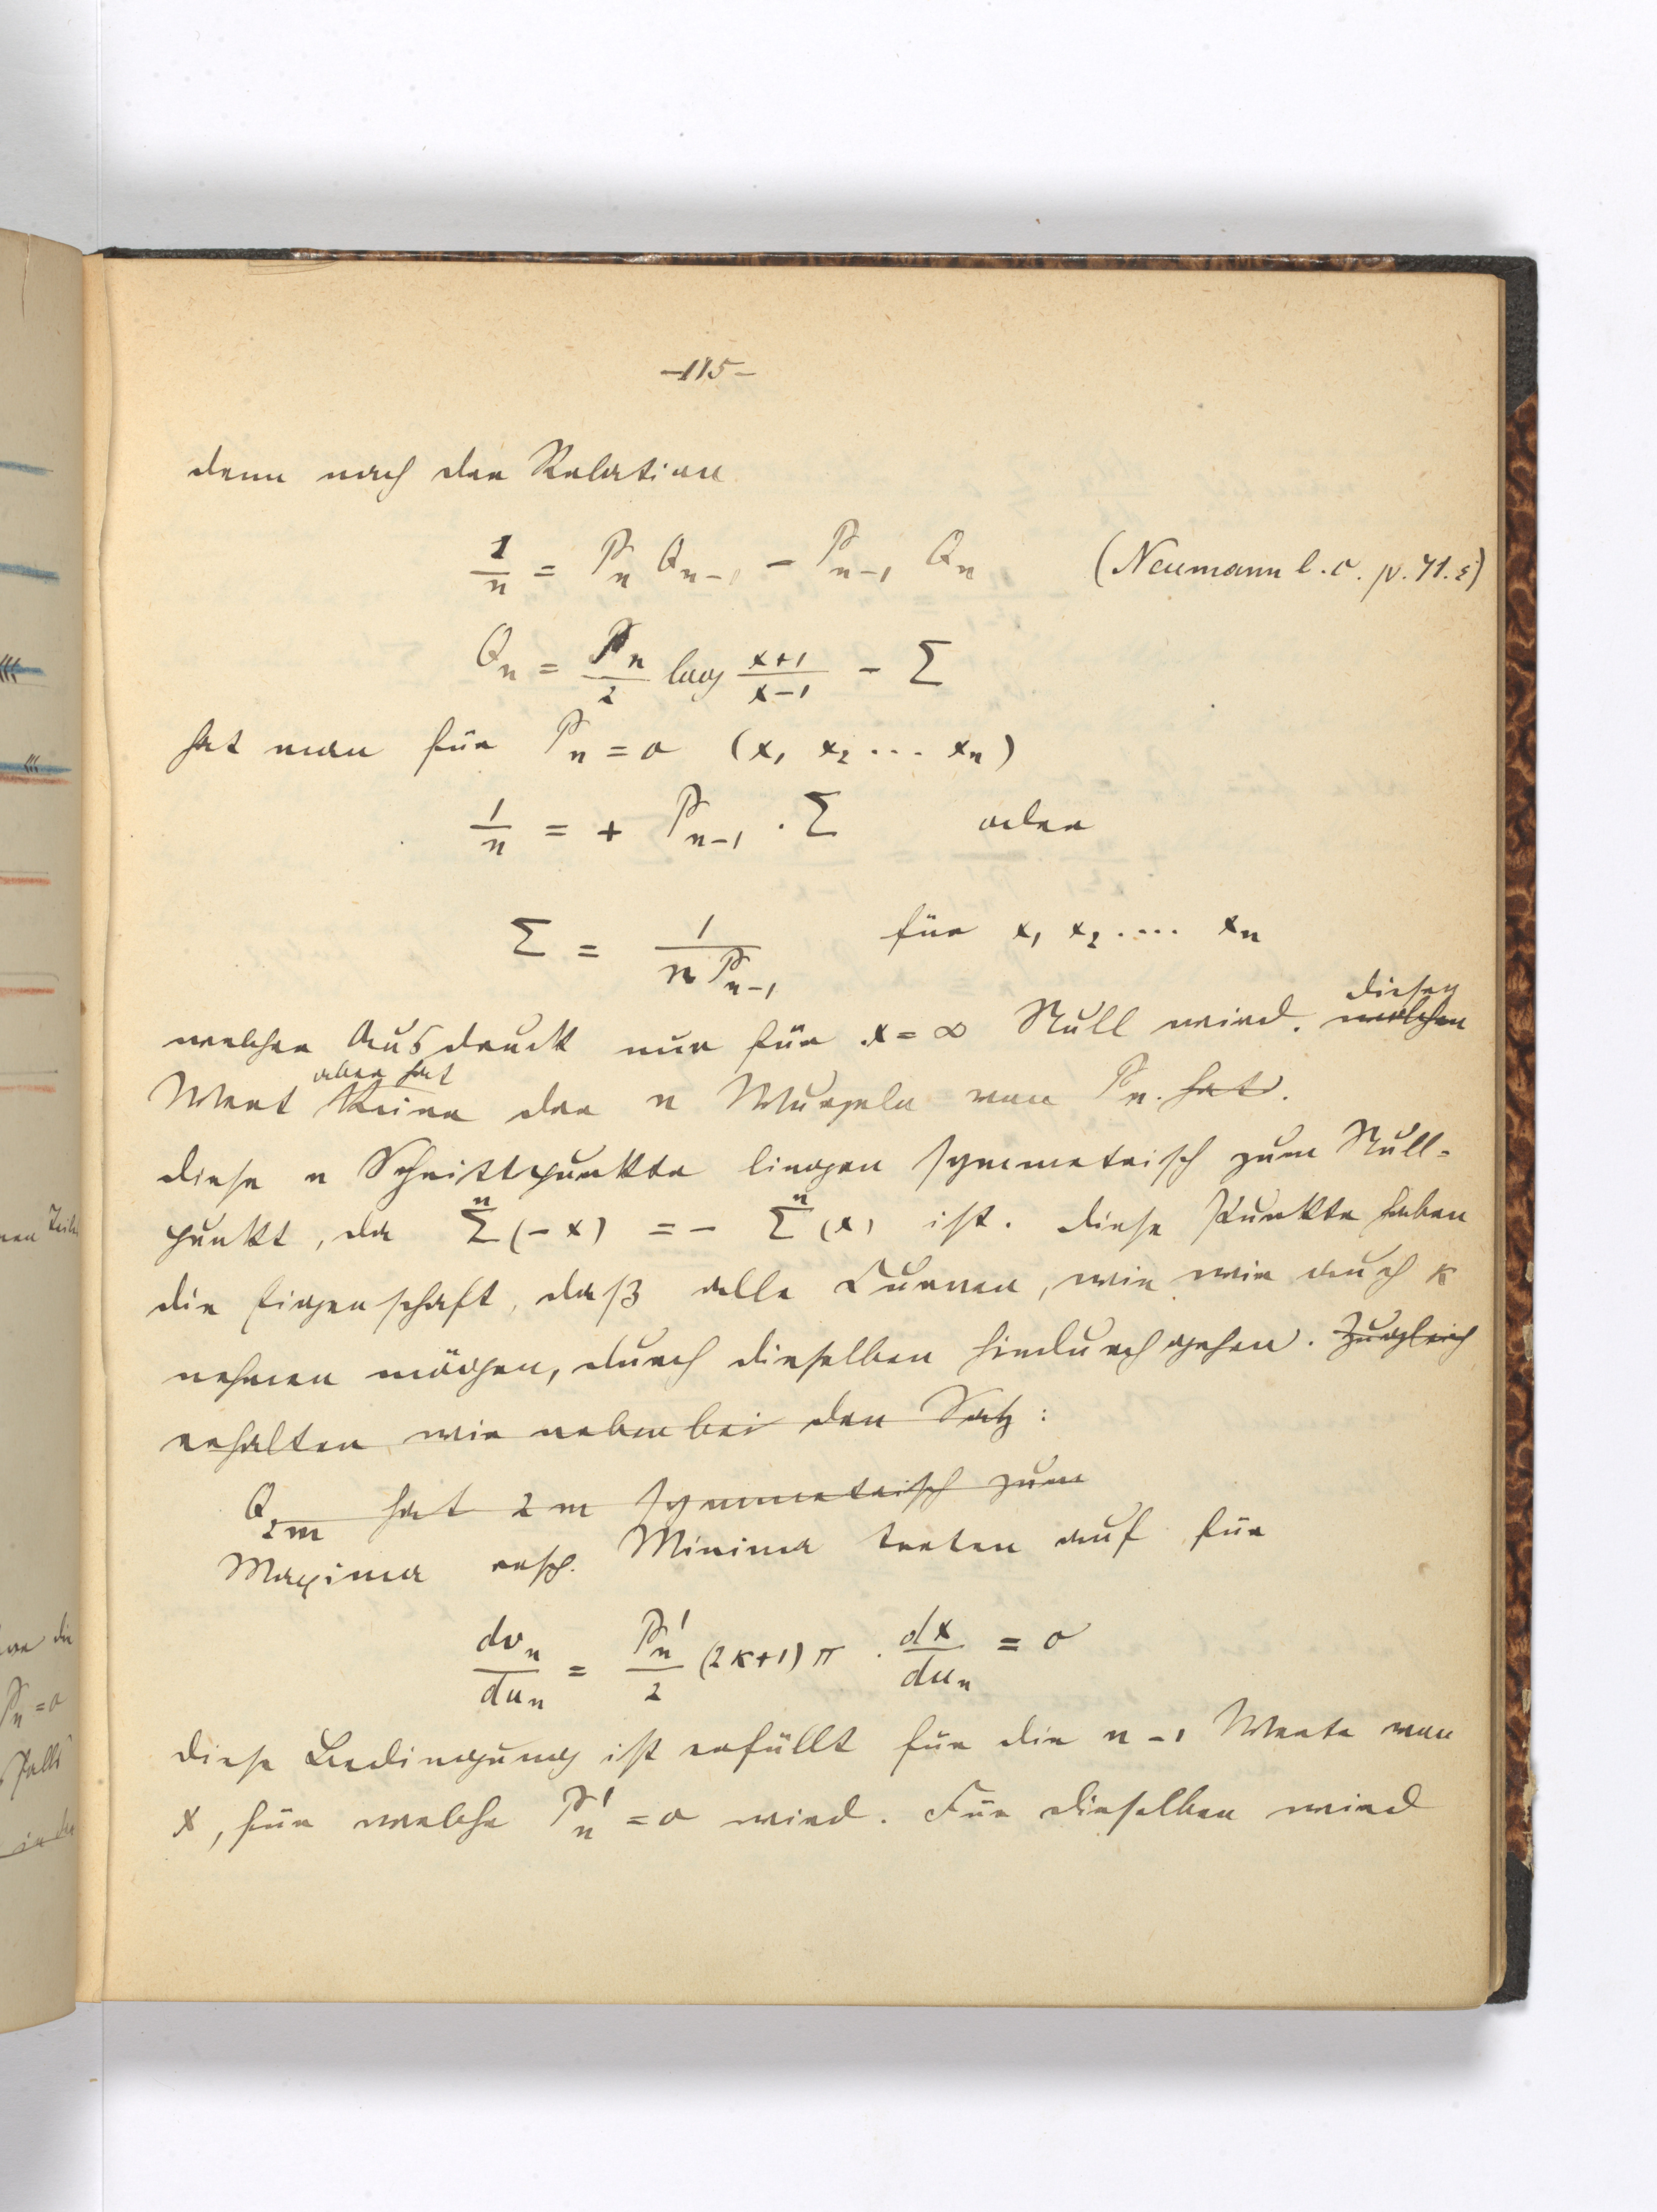 -115-
denn nach der Relation
1/n = Pn Qn-1 - Pn-1 Qn (Neumann l. c. p. 71. ε)
Qn = Pn/2 log x+1/x-1 - Σ
hat man für Pn = 0 (x1 x2 ... xn)
1/n = + Pn-1 . Σ oder
Σ = 1/n Pn-1 für x1 x2 .... xn
diesen
welcher Ausdruck nur für x = ∞ Null wird. welchen
aber hat
Wert keine der n Wurzeln von Pn. hat.
diese n Schnittpunkte liegen symmetrisch zum Null-
punkt, da Σ^n (-x) = - Σ^n (x) ist. diese Punkte haben
die Eigenschaft, daß alle Curven, wie wir auch κ
nehmen mögen, durch dieselben hindurchgehen. Zugleich
erhalten wir nebenbei den Satz:
Q2m hat 2m symmetrisch zum
Maxima resp. Minima treten auf für
dvn/dun = Pn'/2 (2κ+1) π . dx/dun = 0
diese Bedingung ist erfüllt für die n-1 Werte von
x, für welche Pn' = 0 wird. Für dieselben wird